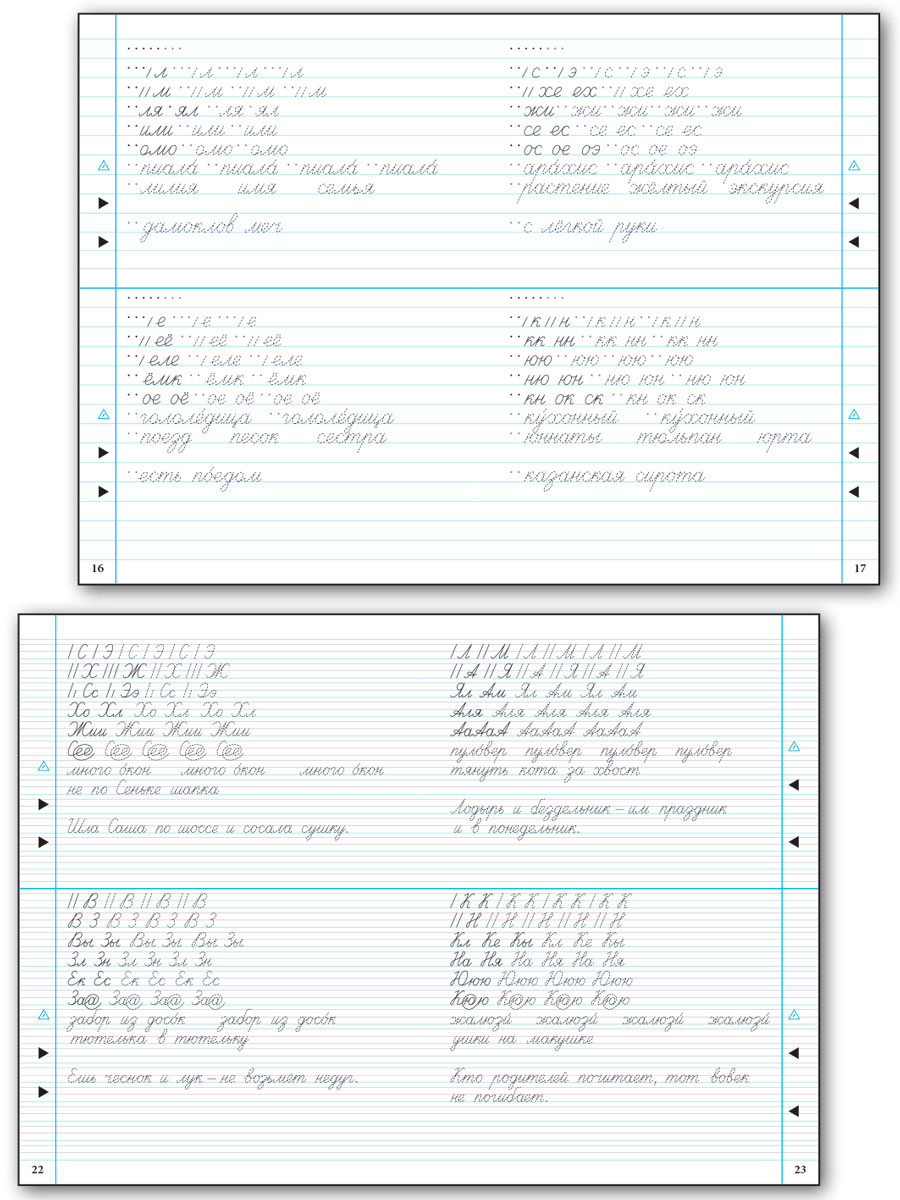 / л / л / л / л
// м // м // м // м
ля ял ля ял
или или или
омо омо омо
пиала́ пиала́ пиала́ пиала́
лилия имя семья
дамоклов меч
/ е / е / е
// её // её // её
/ еле / еле / еле
ёмк ёмк ёмк
ое оё ое оё ое оё
гололе́дица гололе́дица
поезд песок сестра
есть по́едом
16
/ с / э / с / э / с / э
// хе ех // хе ех
жи жи жи жи жи
се ес се ес се ес
ос ое оэ ос ое оэ
ара́хис ара́хис ара́хис
растение жёлтый экскурсия
с лёгкой руки
/ к // н / к // н / к // н
кк нн кк нн кк нн
юю юю юю юю
ню юн ню юн ню юн
кн ок ск кн ок ск
ку́хонный ку́хонный
юннаты тюльпан юрта
казанская сирота
17
/ С / Э / С / Э / С / Э
// Х /// Ж // Х /// Ж
/ı Сс /ı Ээ /ı Сс /ı Ээ
Хо Хл Хо Хл Хо Хл
Жии Жии Жии Жии
много о́кон много о́кон много о́кон
не по Сеньке шапка
Шла Саша по шоссе и сосала сушку.
// В // В // В // В
В З В З В З В З
Вы Зы Вы Зы Вы Зы
Зл Зн Зл Зн Зл Зн
Ек Ес Ек Ес Ек Ес
За@ За@ За@ За@
забо́р из досо́к забо́р из досо́к
тютелька в тютельку
Ешь чеснок и лук – не возьмёт недуг.
22
/ Л // М / Л // М / Л // М
// А // Я // А // Я // А // Я
Ял Ам Ял Ам Ял Ам
Аля Аля Аля Аля Аля
АаАаА АаАаА АаАаА
пуло́вер пуло́вер пуло́вер пуло́вер
тянуть кота за хвост
Лодырь и бездельник – им праздник
и в понедельник.
/ К К / К К / К К / К К
// Н // Н // Н // Н // Н
Кл Ке Кы Кл Ке Кы
На Ня На Ня На Ня
Ююю Ююю Ююю Ююю
К@ю К@ю К@ю К@ю
жалюзи́ жалюзи́ жалюзи́ жалюзи́
ушки на макушке
Кто родителей почитает, тот вовек
не погибает.
23